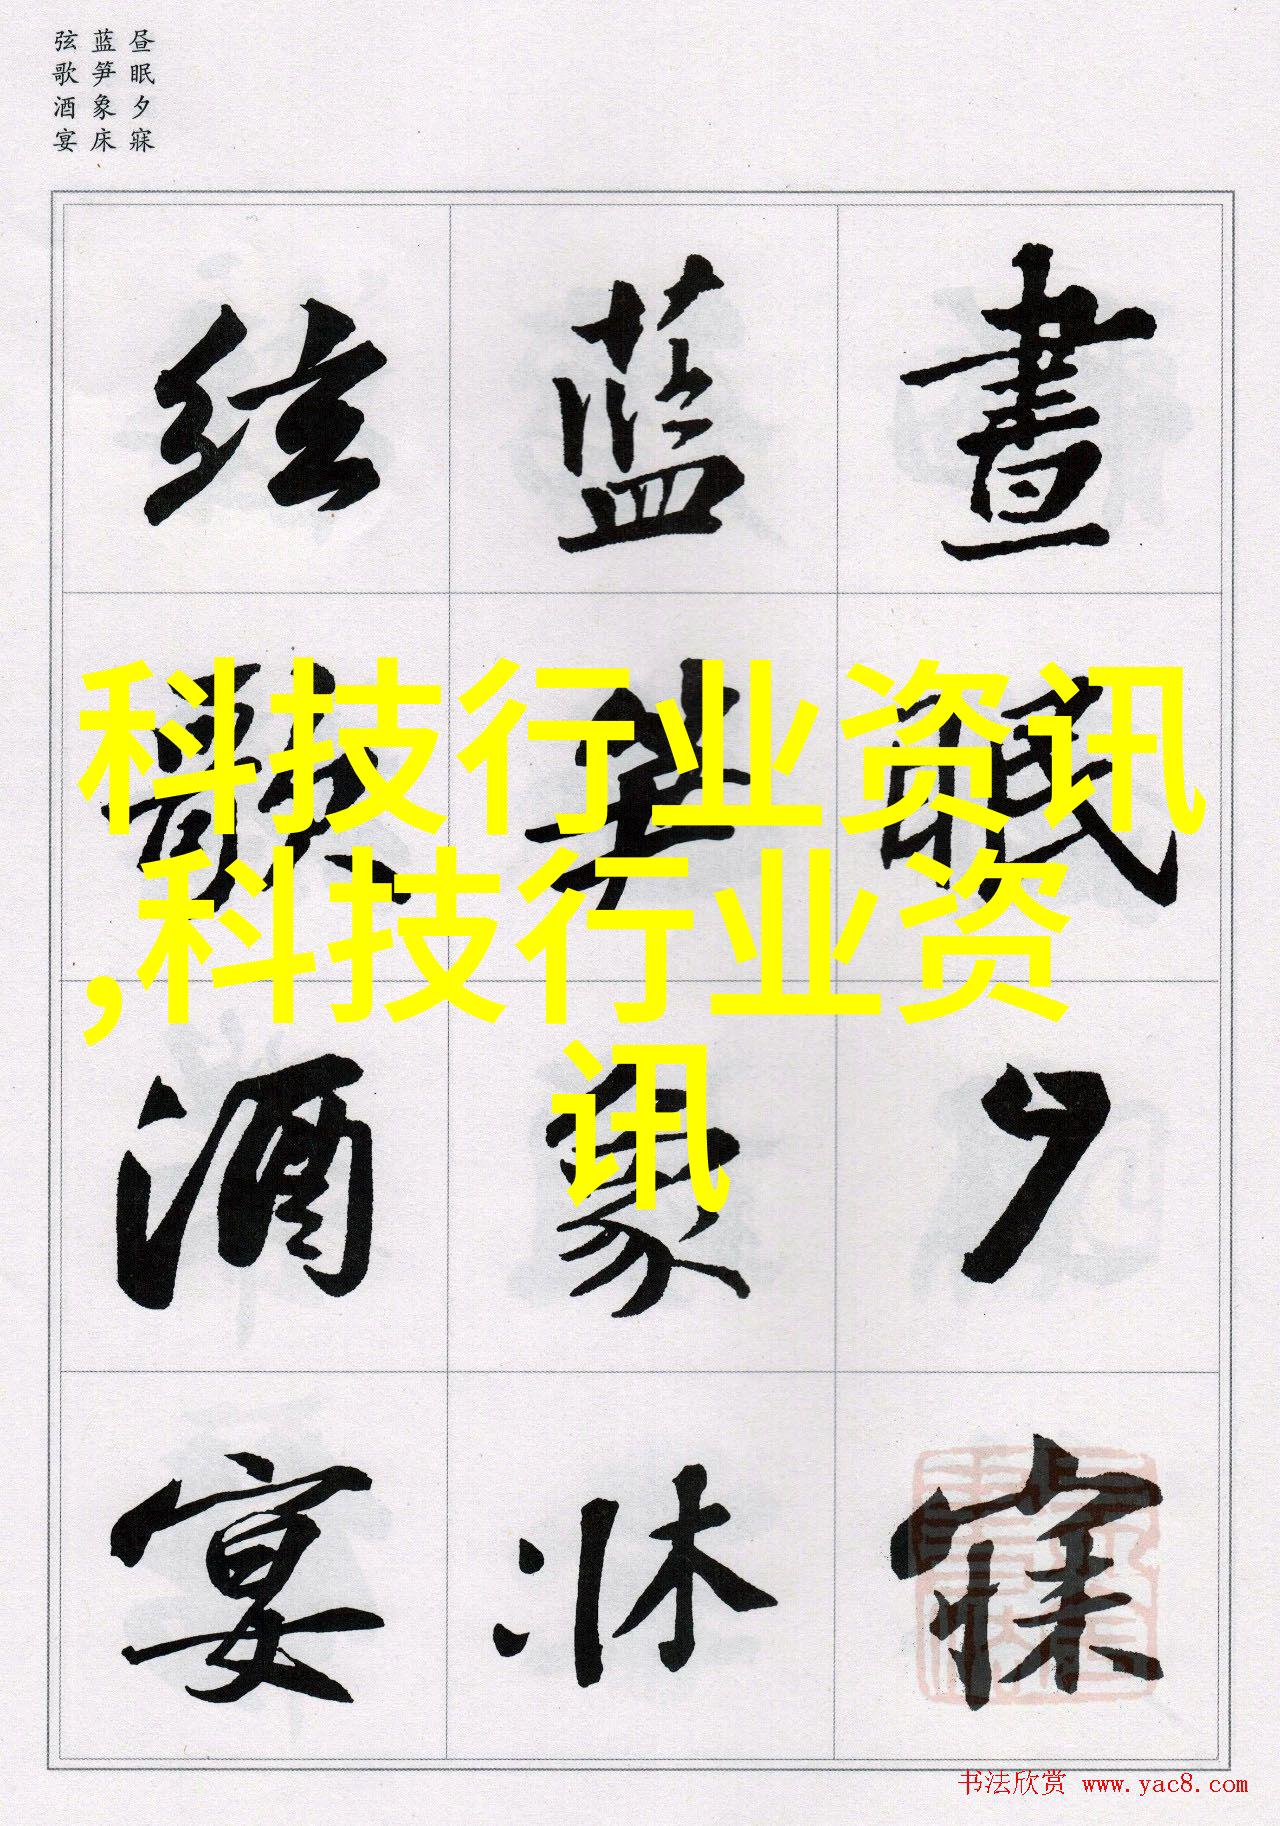 昼眠夕寐
蓝笋象床
弦歌酒宴
晝眠夕寐
藍笋象牀
絃歌酒宴
科技行业资讯
,科技行业资
讯
书法欣赏 www.yac8.com